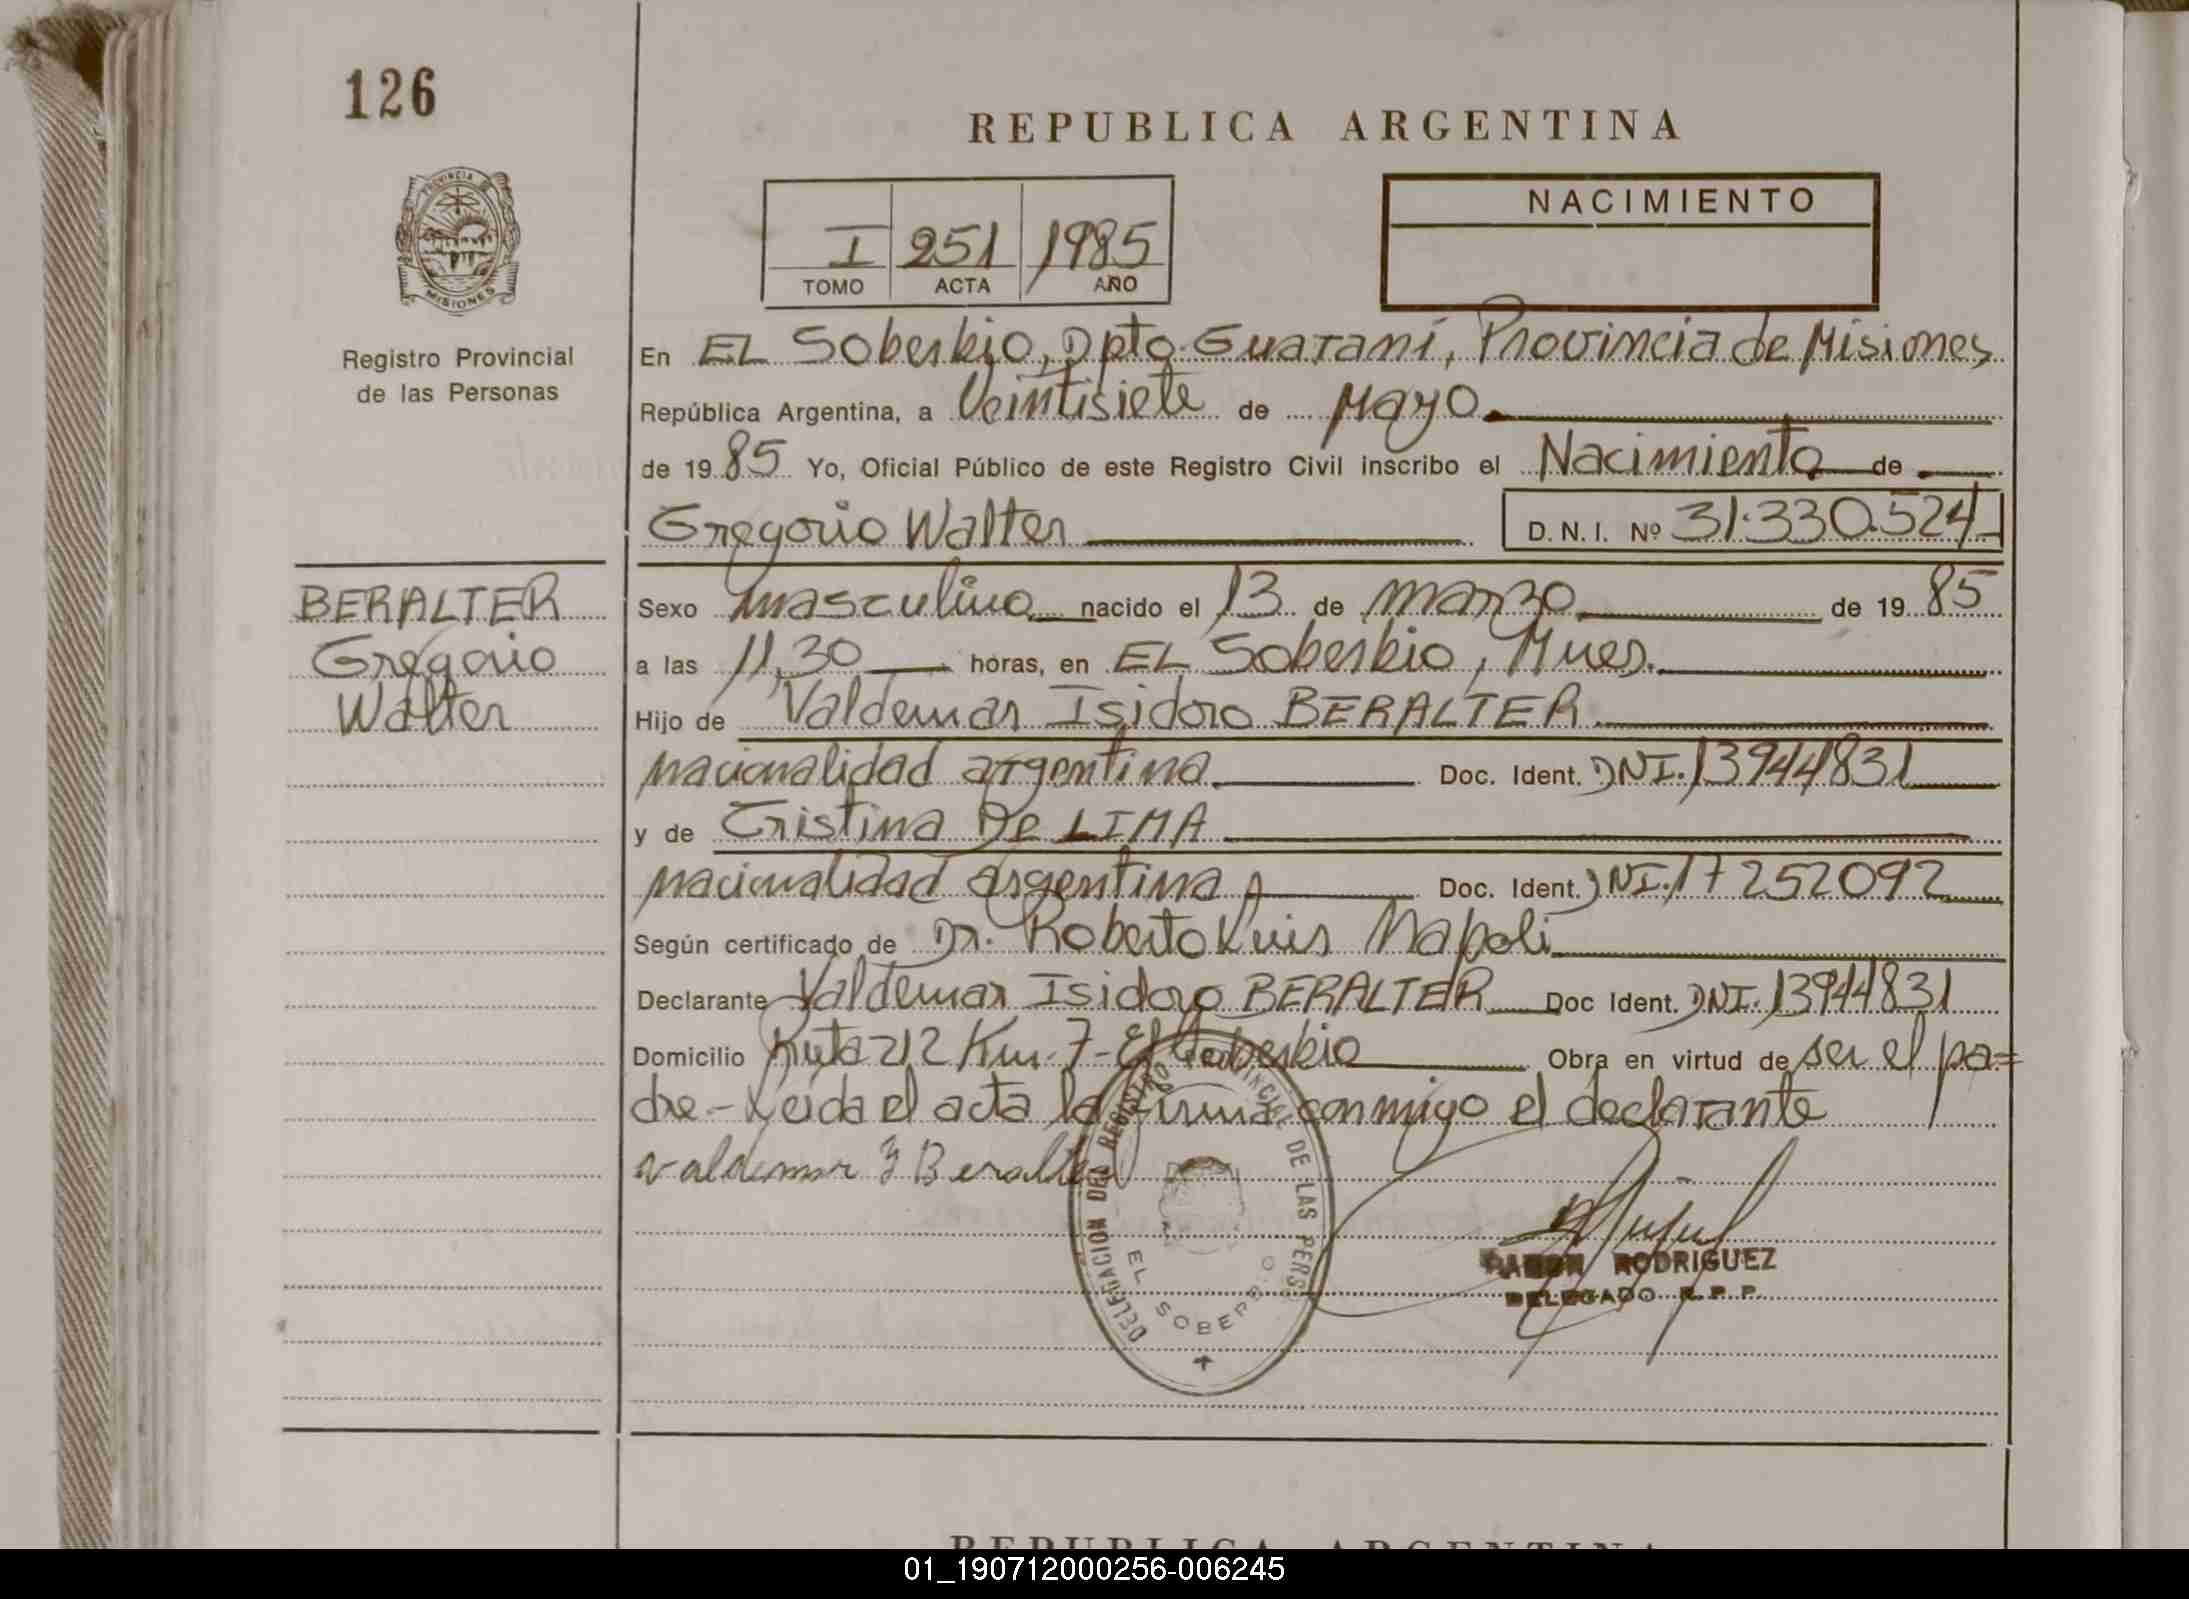 126
REPUBLICA ARGENTINA
PROVINCIA DE
MISIONES
Registro Provincial
de las Personas
I 251 1985
TOMO ACTA AÑO
NACIMIENTO
En EL Soberbio, Dpto. Guaraní, Provincia de Misiones
República Argentina, a Veintisiete de Mayo
de 1985 Yo, Oficial Público de este Registro Civil inscribo el Nacimiento de
Gregorio Walter D. N. I. Nº 31.330.524
BERALTER
Gregorio
Walter
Sexo masculino nacido el 13 de marzo de 1985
a las 11,30 horas, en EL Soberbio, Mnes.
Hijo de Valdemar Isidoro BERALTER
nacionalidad argentina Doc. Ident. DNI. 13944831
y de Cristina De LIMA
nacionalidad argentina Doc. Ident. DNI. 17252092
Según certificado de Dr. Roberto Luis Napoli
Declarante Valdemar Isidoro BERALTER Doc Ident. DNI. 13944831
Domicilio Ruta 212 Km. 7 - El Soberbio Obra en virtud de ser el pa=
dre - Leida el acta la firma conmigo el declarante
valdemar I Beralter
DELEGACION DEL REGISTRO PROVINCIAL DE LAS PERS
EL SOBERBIO
RAMON RODRIGUEZ
DELEGADO R. P. P.
REPUBLICA ARGENTINA
01_190712000256-006245